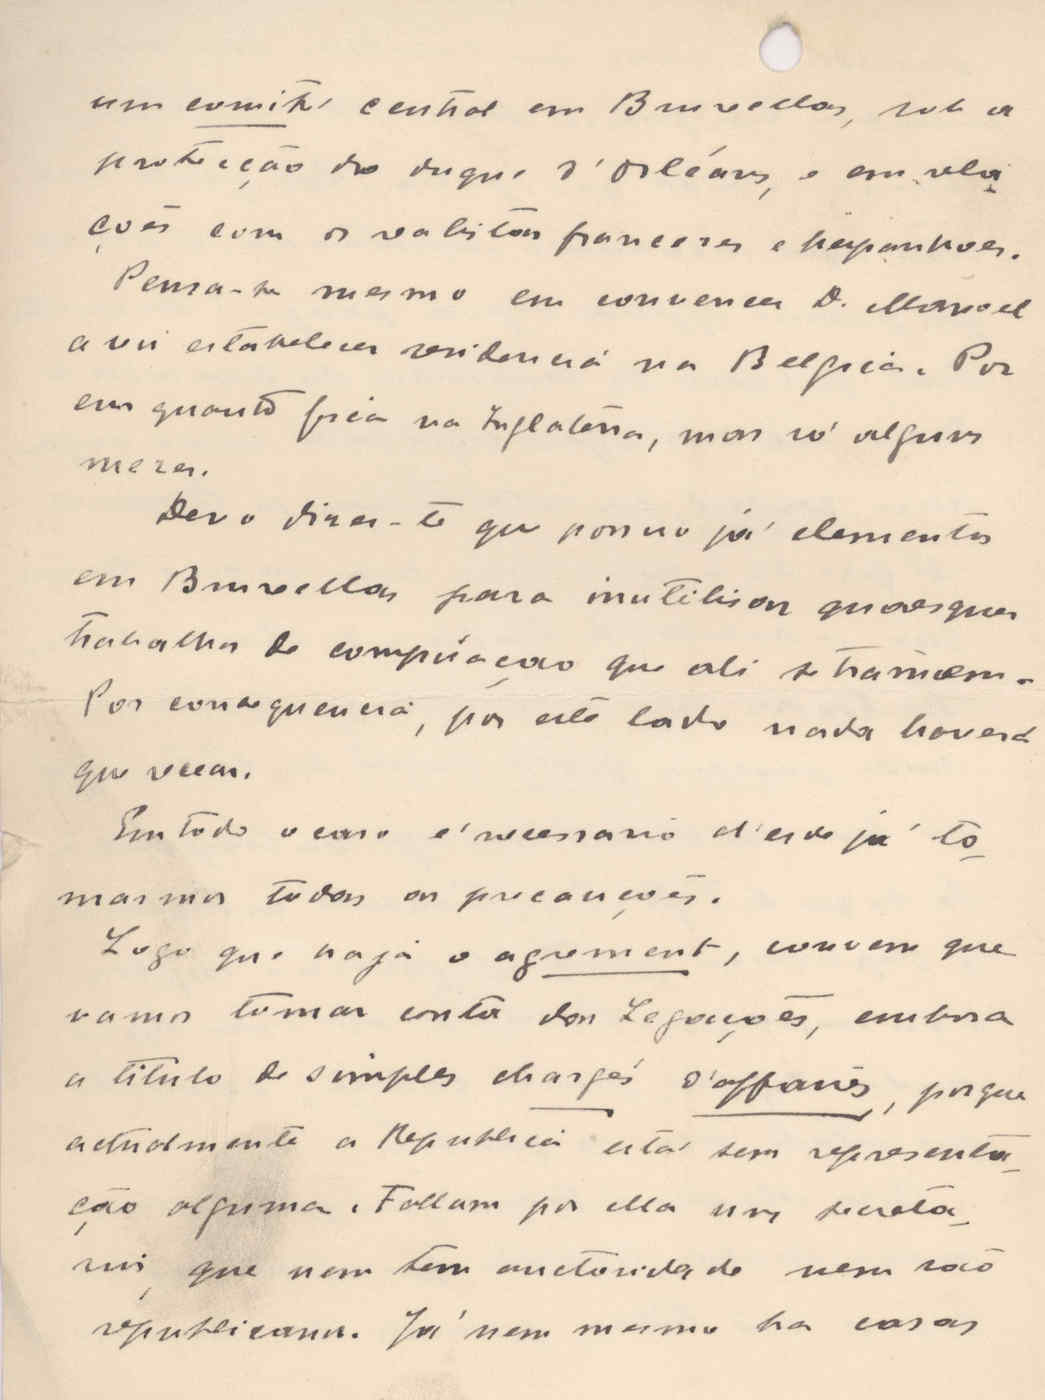 um comité central em Bruxellas, sob a
protecção do duque d'Orléans, e em rela-
ções com os realistas francezes e hespanhoes.
Pensa-se mesmo em convencer D. Manoel
a vir estabelecer residencia na Belgica. Por
em quanto fica na Inglaterra, mas só alguns
mezes.
Devo dizer-te que possuo já elementos
em Bruxellas para inutilisar quaesquer
trabalhos de conspiração que ali se tramem.
Por consequencia, por este lado nada haverá
que recear.
Em todo o caso é necessario d'esde já to-
marmos todas as precauções.
Logo que haja o agrement, convem que
vamos tomar conta das Legações, embora
a titulo de simples chargés d'affaires, porque
actualmente a Republica está sem representa-
ção alguma. Fallam por ella uns secreta-
rios, que nem têm auctoridade nem são
republicanos. Já nem mesmo ha casas